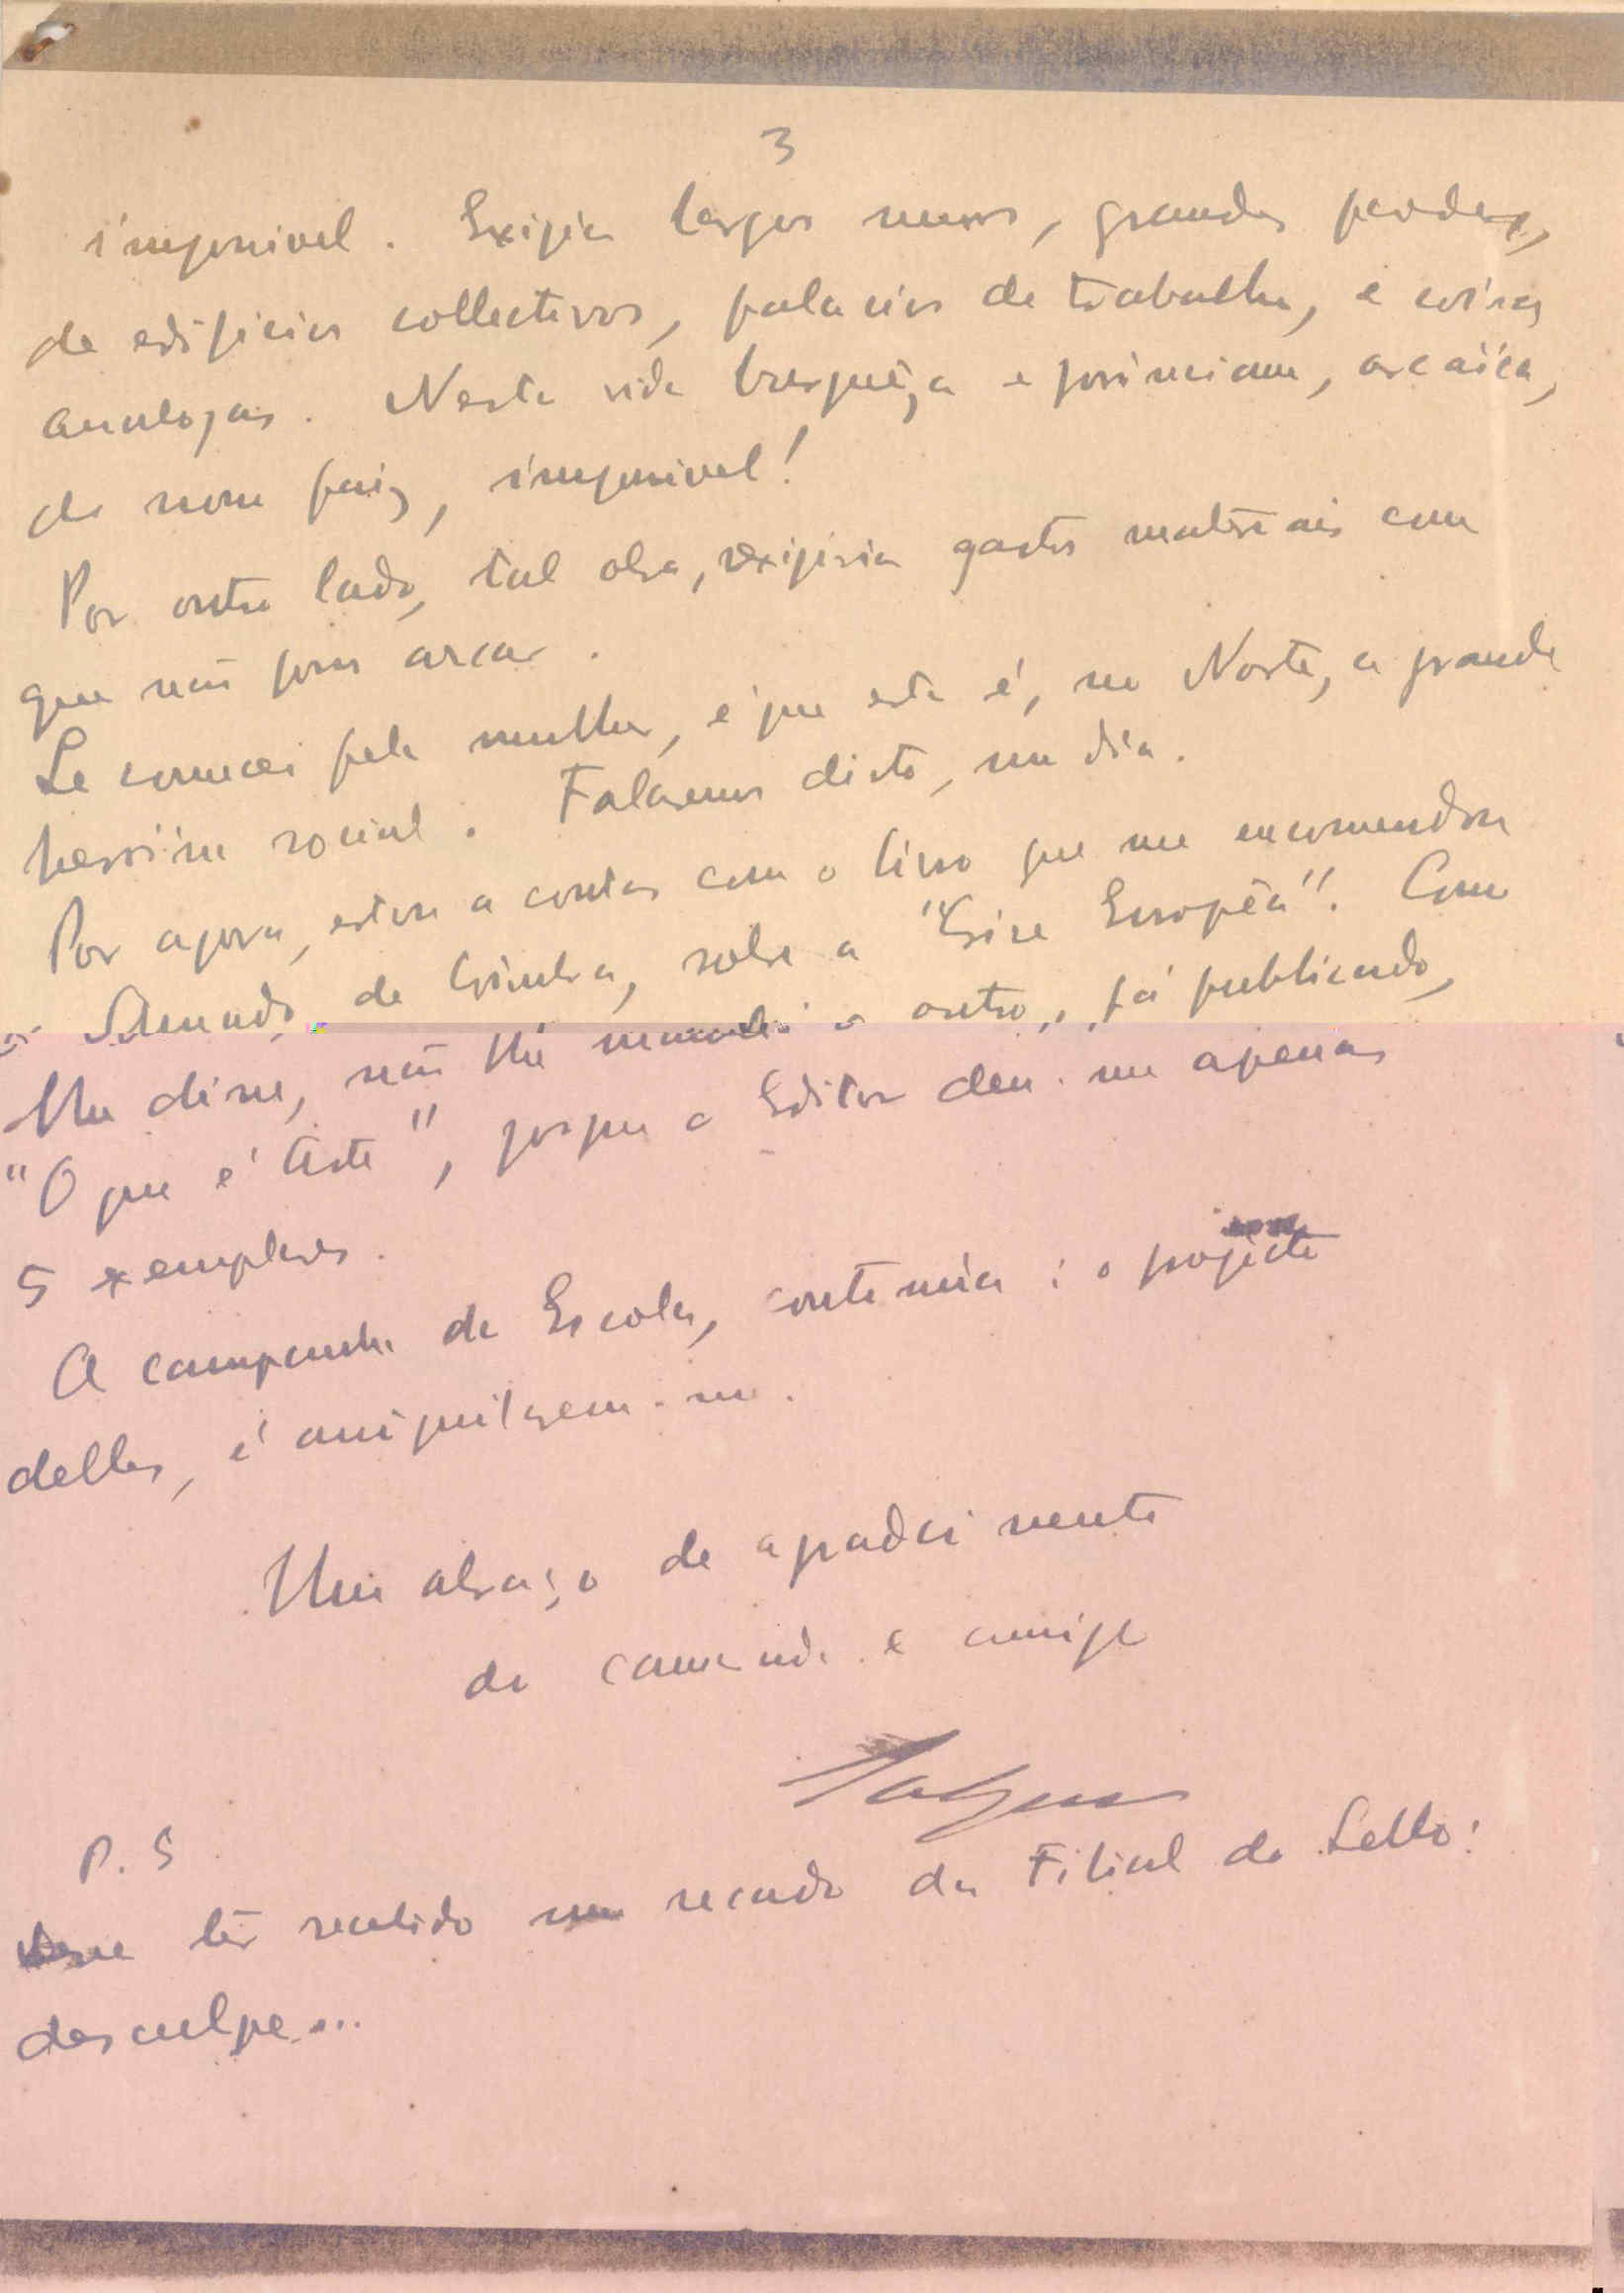 3
impossivel. Exigia largos muros, grandes paredes,
de edificios collectivos, palacios de trabalho, e coisas
analogas. Nesta vida burguêza e provinciana, arcaica,
do nosso paiz, impossivel!
Por outro lado, tal obra, exigiria gastos materiais com
que não posso arcar.
Se comecei pela mulher, é que esta é, no Norte, a grande
heroina social. Falaremos disto, um dia.
Por agora, estou a contas com o livro que me encomendou
o Armando, de Coimbra, sobre a "Crise Europêa". Como
lhe disse, não lhe mandei o outro, já publicado,
"O que é Arte", porque o Editor deu-me apenas
5 exemplares.
A campanha da Escola, continúa: o projecto
delles, é aniquilarem-me.
Um abraço de agradecimento
do camarada e amigo
P.S.
ter recebido um recado da Filial do Lello:
desculpe...